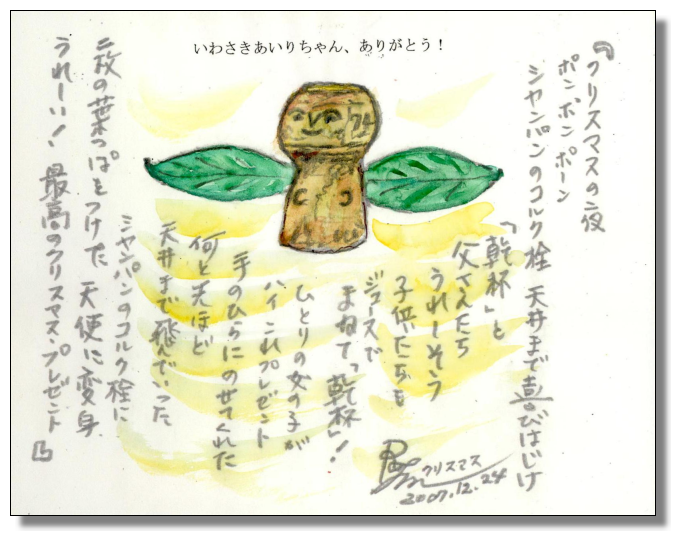 いわさきあいりちゃん、ありがとう！
『クリスマスの夜
ポンポンポーン
シャンパンのコルク栓 天井まで喜びはじけ
「乾杯」と
父さんたち
うれしそう
子供たちも
ジュースで
まねて「乾杯」!
ひとりの女の子が
ハイこれプレゼント
手のひらにのせてくれた
何と先ほど
天井まで飛んでいった
シャンパンのコルク栓に
二枚の葉っぱをつけた 天使に変身
うれしい! 最高のクリスマス・プレゼント』
クリスマス
2007.12.24